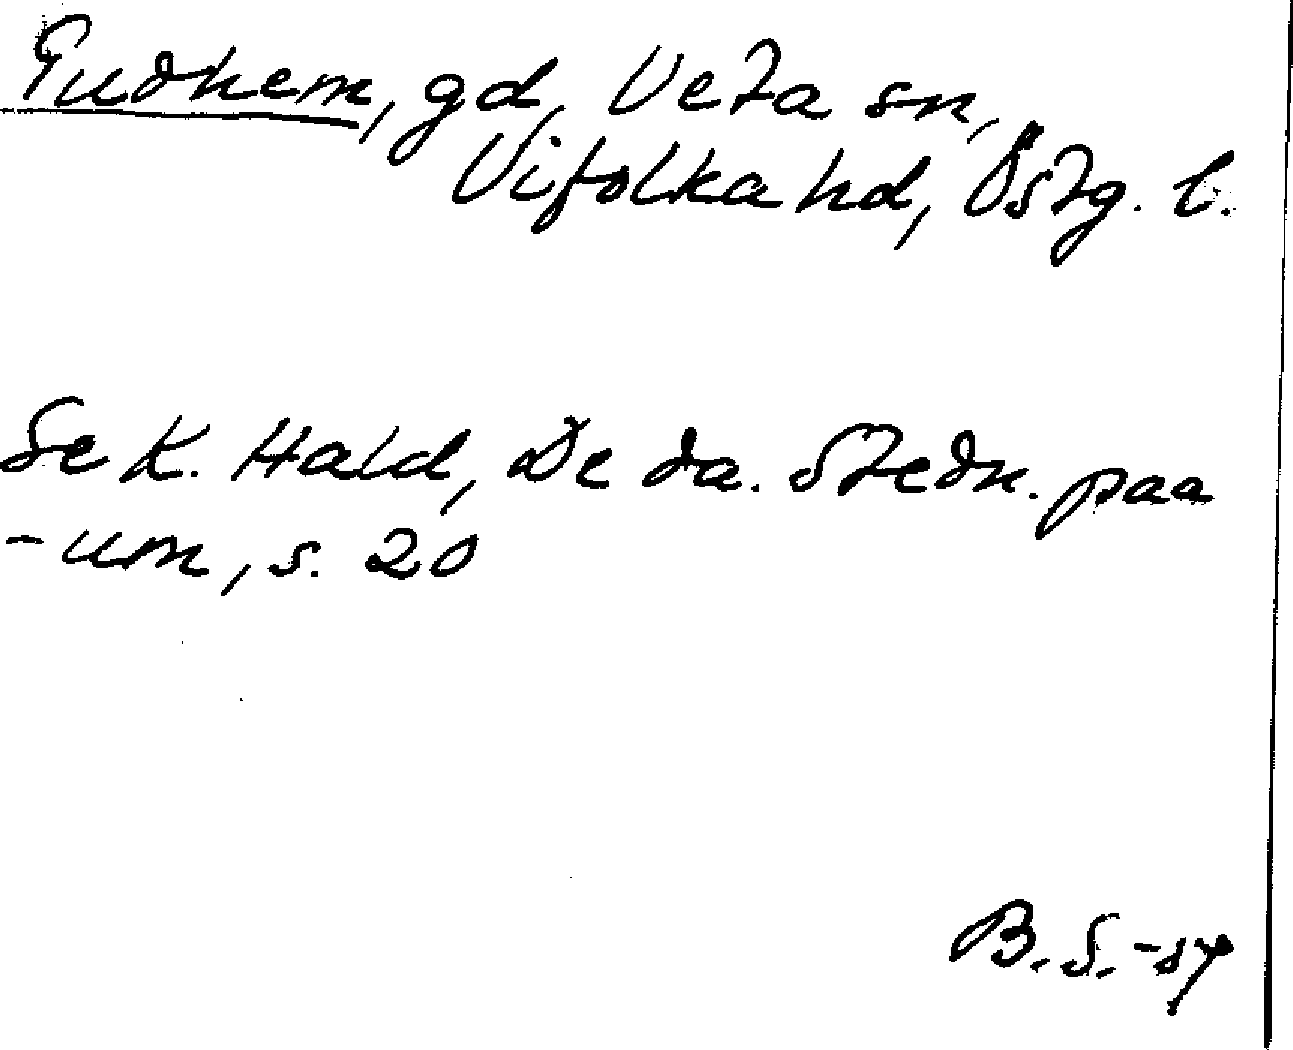 Gudhem, gd, Veta sn,
Vifolka hd, Östg. l.
Se K. Hald, De da. Stedn. paa
-um, s. 20
B. S. -57